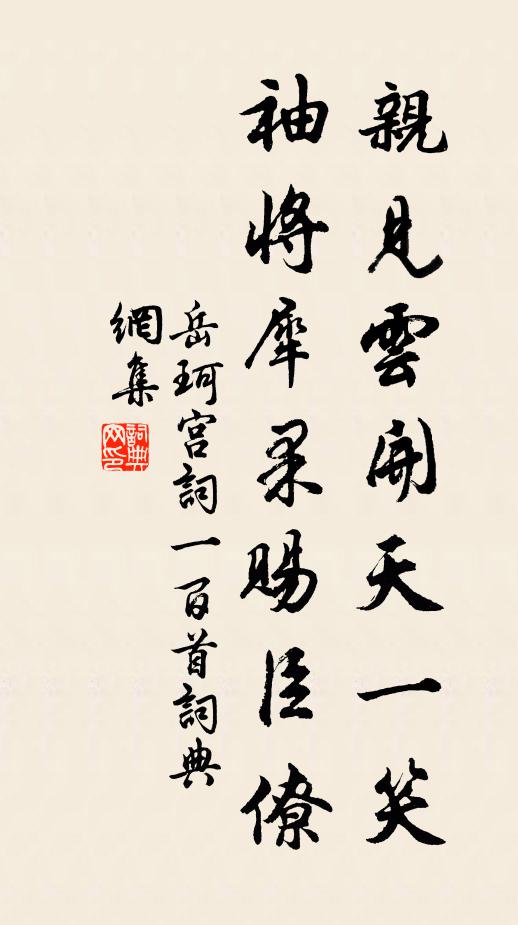 親見雲開天一笑
袖將犀果賜臣僚
岳珂宮詞一百首詞典
網集
詞典
网印